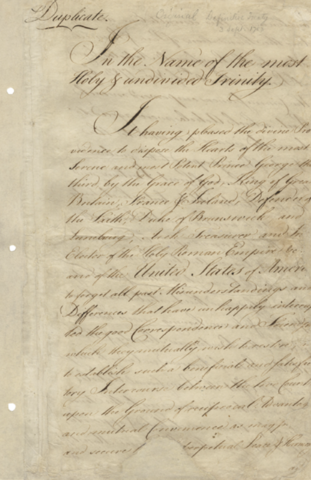 Duplicate.
In the Name of the most
Holy & undivided Trinity.
It having pleased the divine Pro
vidence to dispose the Hearts of the most
Serene and most Potent Prince George the
third, by the Grace of God, King of Great
Britain, France & Ireland, Defender of
the Faith, Duke of Brunswick and
Lunebourg, Arch Treasurer, and
Elector of the Holy Roman Empire &c
and of the United States of Ameri
to forget all past Misunderstandings and
Differences that have unhappily interrup
ted the good Correspondence and Friendship
which they mutually wish to restore;
to establish such a beneficial and satisfac
tory Intercourse between the two Count
upon the Ground of reciprocal Advantages
and mutual Convenience as may
and secure perpetual Peace & Harmony